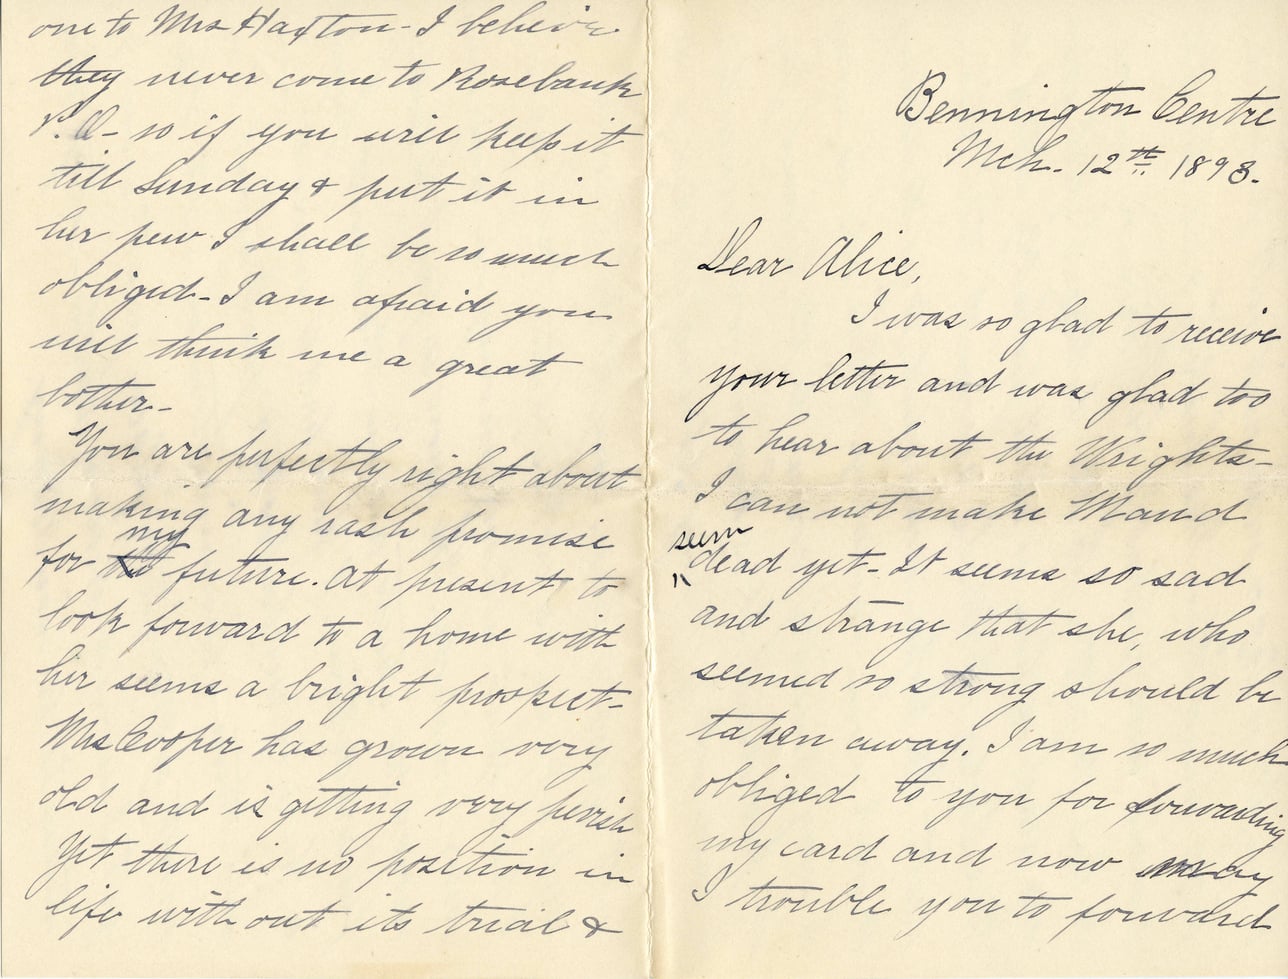 Bennington Centre
Mch. 12th 1893.
Dear Alice,
I was so glad to receive
your letter and was glad too
to hear about the Wrights-
I can not make Maud
seem
dead yet- It seems so sad
and strange that she, who
seemed so strong should be
taken away. I am so much
obliged to you for forwarding
my card and now may
I trouble you to forward
one to Mrs Haxton- I believe
they never come to Rosebank
P.O- so if you will keep it
till Sunday & put it in
her pew I shall be so much
obliged- I am afraid you
will think me a great
bother-
You are perfectly right about
making any rash promise
my
for the future. At present to
look forward to a home with
her seems a bright prospect-
Mrs Cooper has grown very
old and is getting very pevish
Yet there is no position in
life with out its trial &